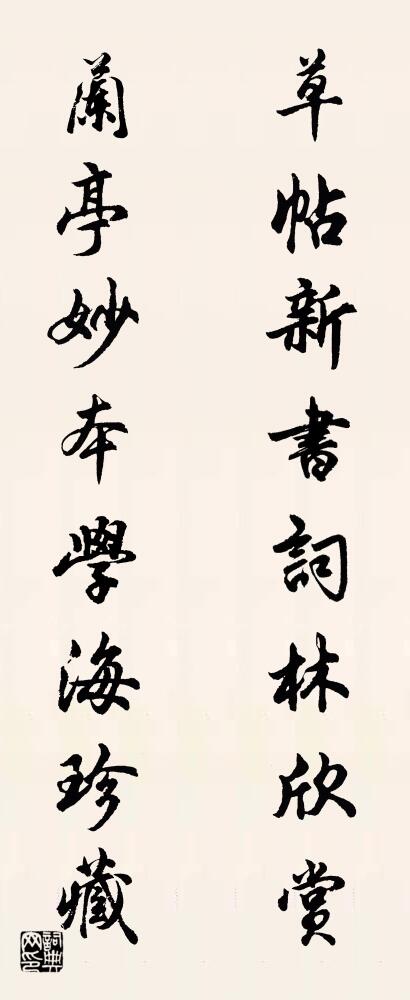 草帖新書詞林欣賞
蘭亭妙本學海珍藏
詞典網印